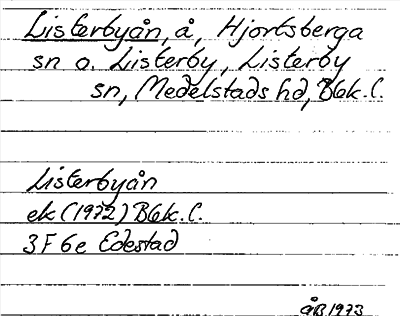 Listerbyån, å, Hjortsberga
sn o. Listerby, Listerby
sn, Medelstads hd, Blek. l.
Listerbyån
ek (1972) Blek. l.
3 F 6 e Edestad
åB 1973